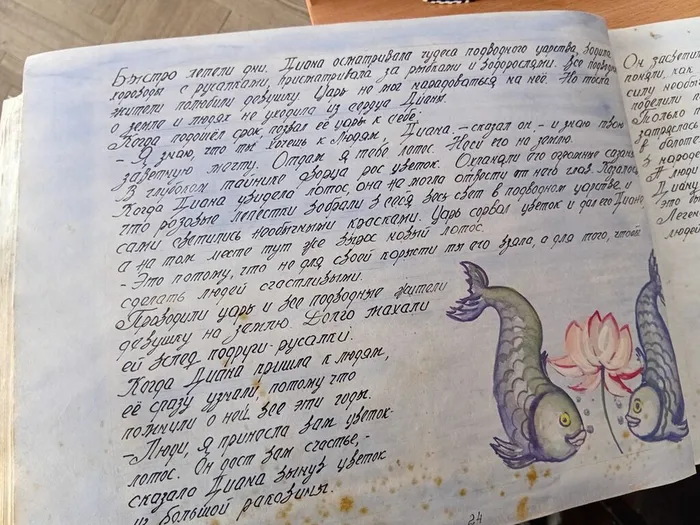 Быстро летели дни. Диана осматривала чудеса подводного царства, водила
хороводы с русалками, присматривала за рыбками и водорослями. Все подводные
жители полюбили девушку. Царь не мог нарадоваться на неё. Но тоска
о земле и людях не уходила из сердца Дианы.
Когда подошёл срок, позвал её царь к себе:
- Я знаю, что ты хочешь к людям, Диана. - сказал он, - и знаю твою
заветную мечту. Отдам я тебе лотос. Неси его на землю.
В глубоком тайнике дворца рос цветок. Охраняли его огромные сазаны.
Когда Диана увидела лотос, она не могла отвести от него глаз. Казалось,
что розовые лепестки вобрали в себя весь свет в подводном царстве и
сами светились необычными красками. Царь сорвал цветок и дал его Диане,
а на том месте тут же вырос новый лотос.
- Это потому, что не для своей корысти ты его взяла, а для того, чтобы
сделать людей счастливыми.
Проводили царь и все подводные жители
девушку на землю. Долго махали
ей вслед подруги-русалки.
Когда Диана пришла к людям,
её сразу узнали, потому что
помнили о ней все эти годы.
- Люди, я принесла вам цветок-
лотос. Он даст вам счастье, -
сказала Диана вынув цветок
из большой раковины.
24
Он засветил
поняли, как
силу необы
поделили п
Сколько
затряслась
в болоте
в народе
А люди
Диана
это бы
Леген
людей